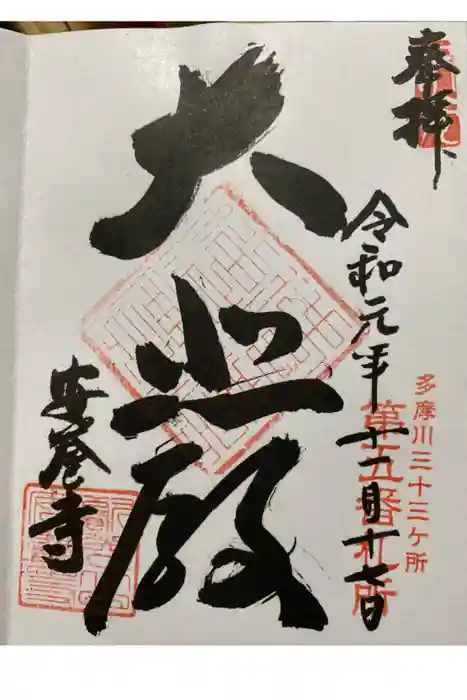 奉拝
令和元年十一月十七日
多摩川三十三ヶ所
第五番札所
大悲殿
安養寺